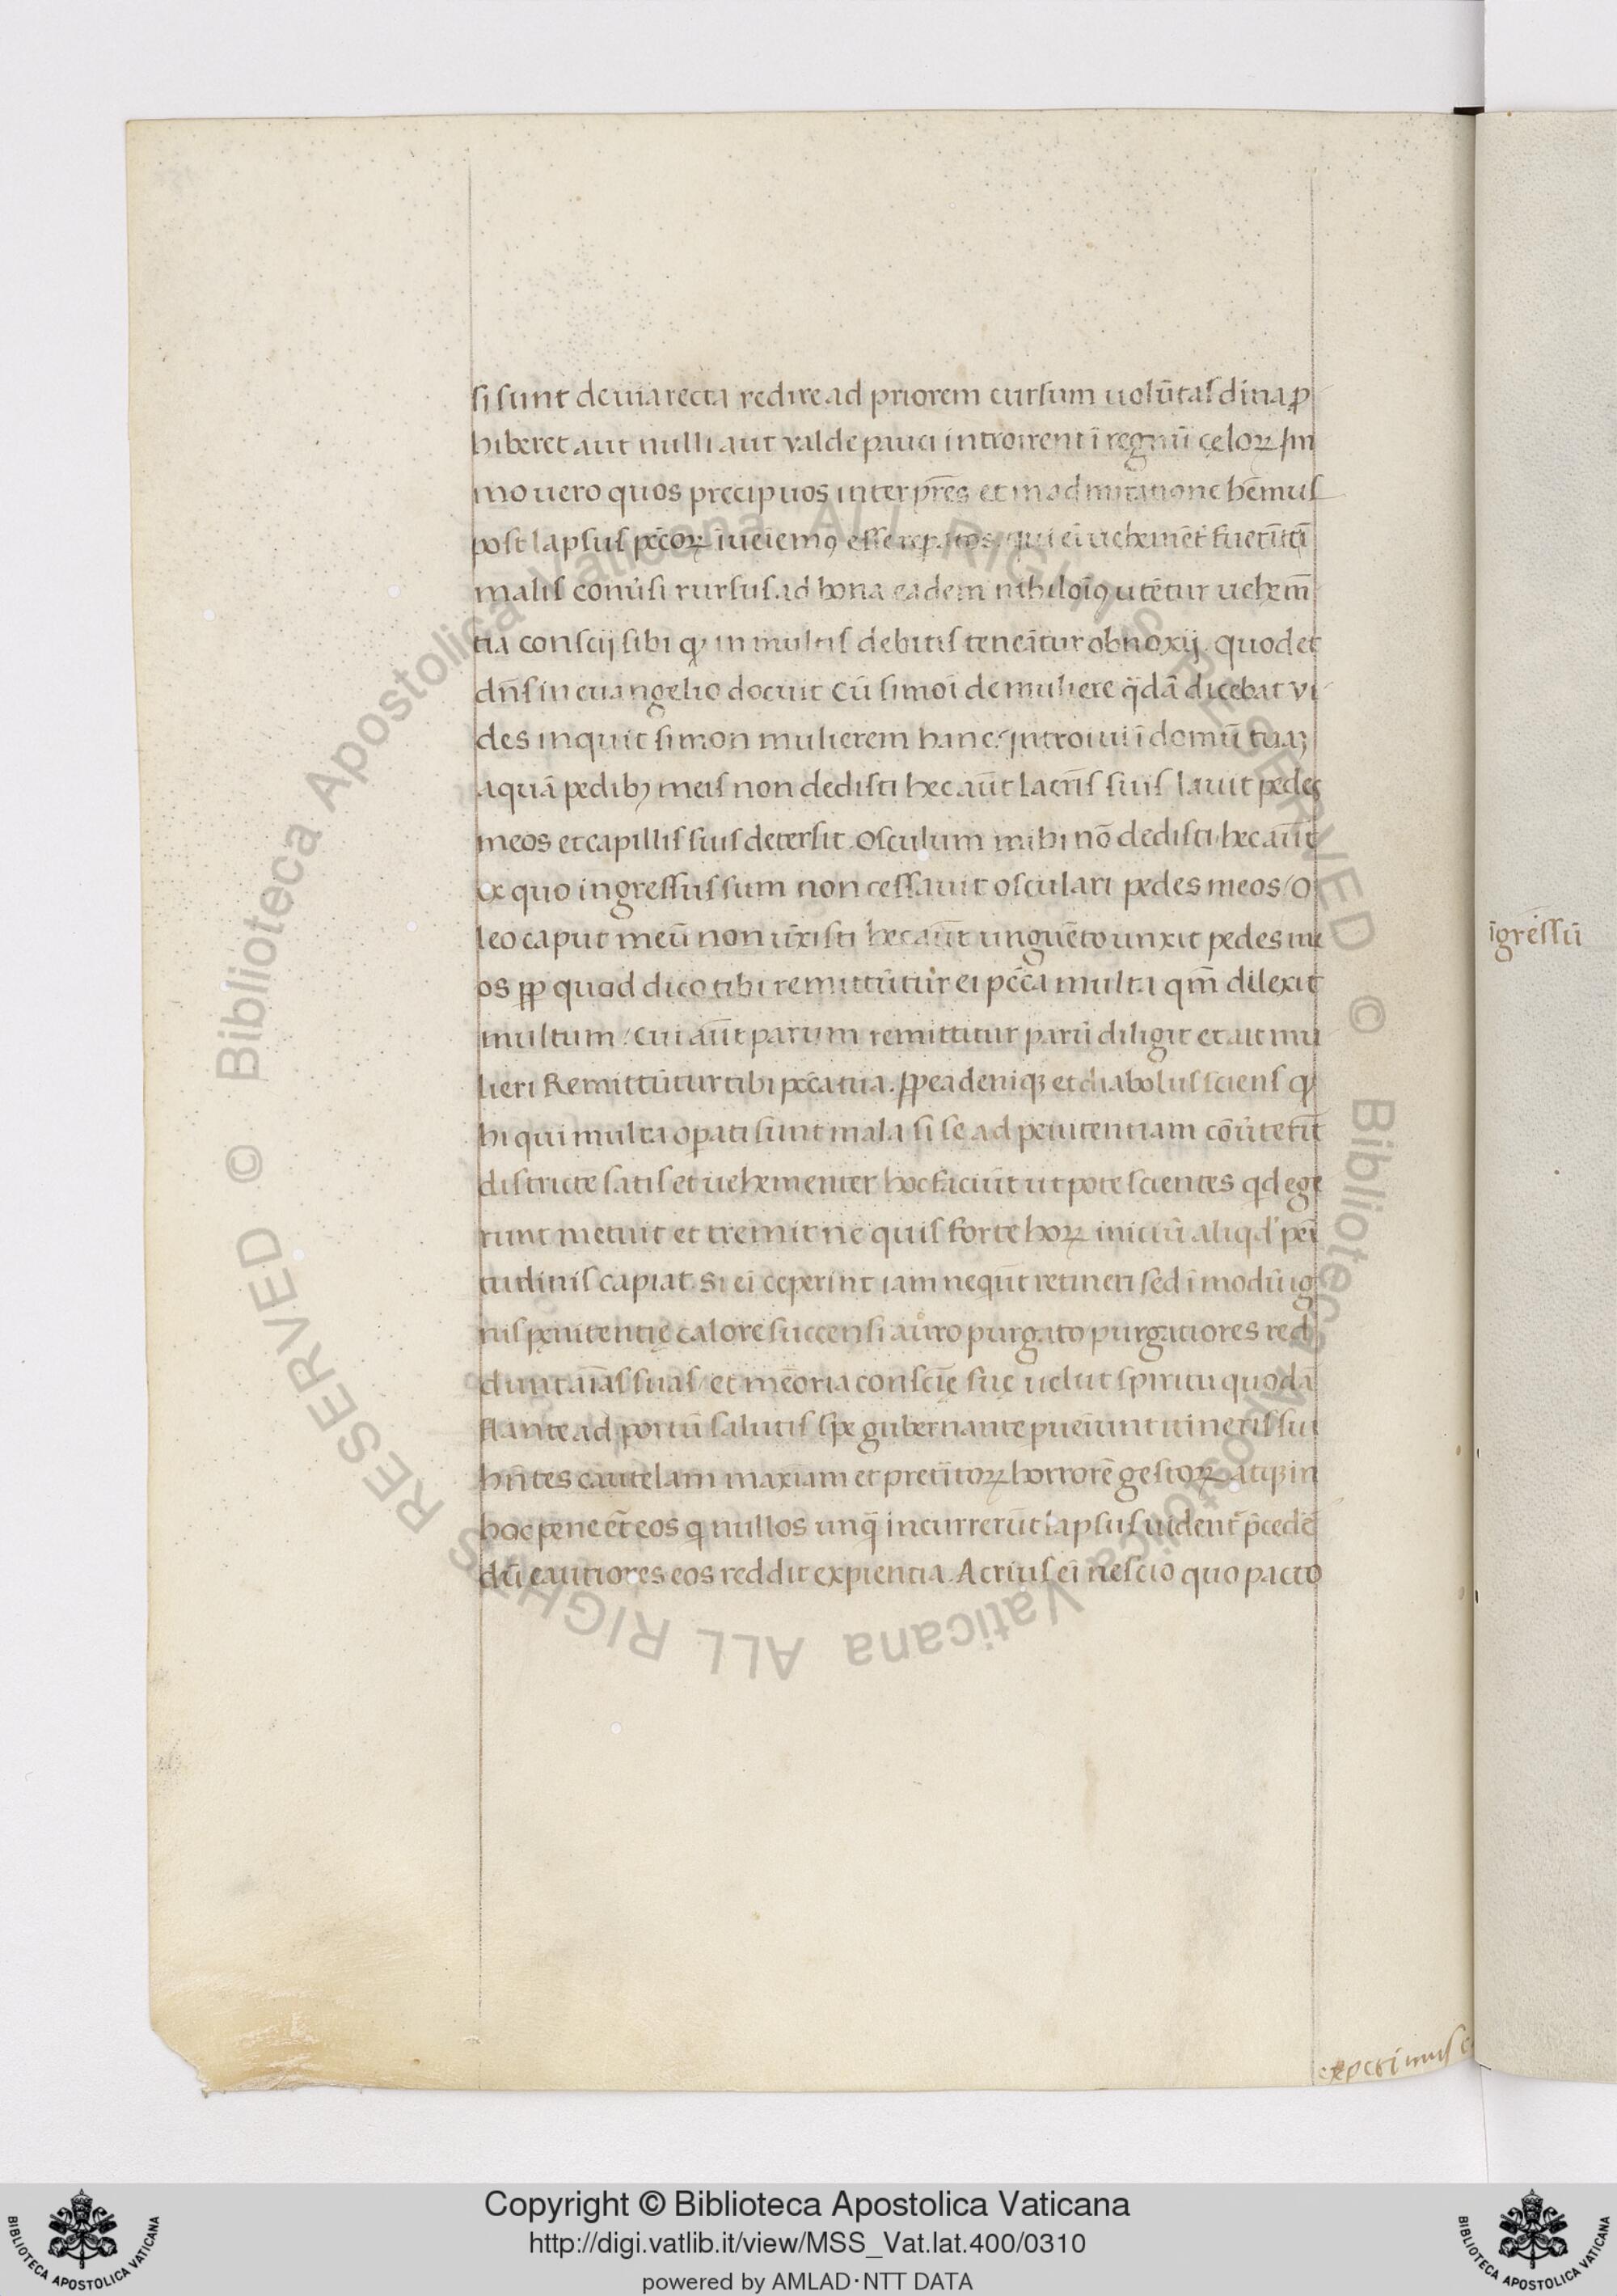 si sunt de uia recta redire ad priorem cursum uolūtas diīna ꝓ
hiberet aut nulli aut valde pauci introirent ī regnū cęloꝝ Im
mo uero quos precipuos inter pr̄es et in admiratione hēmus
post lapsus pc̄coꝝ īueīemꝯ esse repatos, qui eī uehemēt fuerūt ī
malis conūsi rursus ad bona eadem nihiloīꝯ utētur uehem̄
tia conscij sibi ꝙ in multis debitis teneātur obnoxij. quod et
dn̄s in euangelio docuit Cū simoī de muliere q̄dā dicebat vi
des inquit simon mulierem hanc? Introiui ī domū tuaꝫ
aquā pedibꝫ meis non dedisti hec aūt lacrīs suis lauit pedes
meos et capillis suis detersit. Osculum mihi nō dedisti hec aūt
ex quo ingressus sum non cessauit osculari pedes meos / O
leo caput meū non ūxisti hec aūt unguēto unxit pedes me
os ꝓp quod dico tibi remittūtur ei pc̄cā multa qm̄ dilexit
multum / Cui aūt parum remittitur parū diligit et ait mu
lieri Remittūtur tibi pc̄ca tua. ꝓp ea deniqꝫ et diabolus sciens ꝙ
hi qui multa oꝑati sunt mala si se ad penitentiam cōūterīt
districte satis et uehementer hoc faciūt ut pote scientes qd ege
runt metuit et tremit ne quis forte hoꝝ iniciū aliqd' peī
tudinis capiat. Si eī ceperint iam nequt retineri sed ī modū ig
nis pęnitentię calore succensi auro purgato purgatiores red
dunt aīas suas / et mēoria conscīę suę uelut spiritu quodā
flante ad portū salutis spe gubernante pueīunt itineris sui
hn̄tes cautelam maxīam et pretītoꝝ horrorē gestoꝝ atqꝫ in
hoc pene et̄ eos q nullos unq̄ incurrerūt lapsus uident' p̄cedē
dū cautiores eos reddit exꝑientia. Acrius eī nescio quo pacto
experimus
īgressū
Copyright © Biblioteca Apostolica Vaticana
http://digi.vatlib.it/view/MSS_Vat.lat.400/0310
powered by AMLAD·NTT DATA